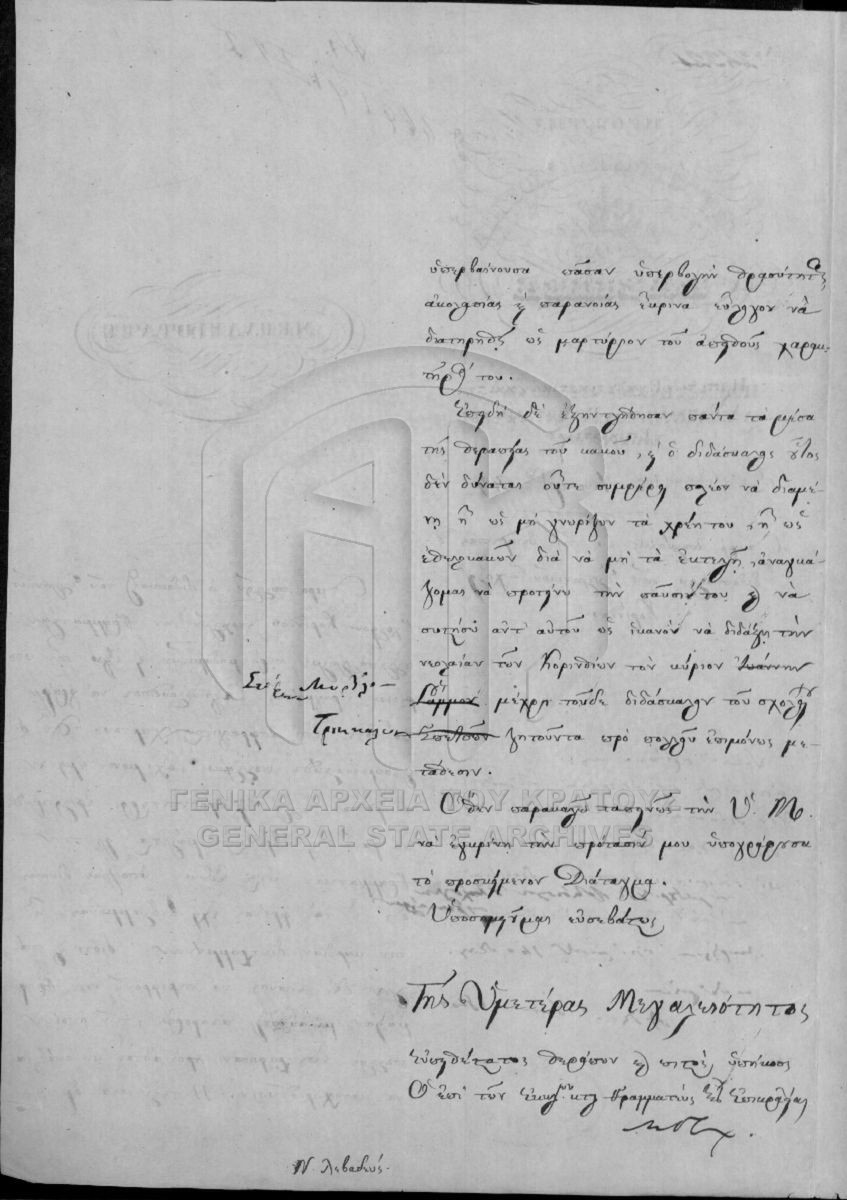 ὑπερβαίνουσα πᾶσαν ὑπερβολὴν θρασύτητος
ἀκολασίας καὶ παρανοίας ἔκρινα εὔλογον νὰ
διατηρηθῇ ὡς μαρτύριον τοῦ ἀπειθοῦς χαρακ-
τῆρός του.
Ἐπειδὴ δὲ ἐξηντλήθησαν πάντα τὰ μέσα
τῆς θεραπείας τοῦ κακοῦ, καὶ ὁ διδάσκαλος οὗτος
δὲν δύναται οὔτε συμφέρει πλέον νὰ διαμέ-
νῃ ἢ ὡς μὴ γνωρίζων τὰ χρέη του, ἢ ὡς
ἐθελοκακῶν διὰ νὰ μὴ τὰ ἐκτελῇ, ἀναγκά-
ζομαι νὰ προτείνω τὴν παῦσίν του καὶ νὰ
συστήσω ἀντ' αὐτοῦ ὡς ἱκανὸν νὰ διδάξῃ τὴν
νεολαίαν τῶν Κορινθίων τὸν κύριον Ἰωάννην
μέχρι τοῦδε διδάσκαλον τοῦ σχολείου
Τρικκάλων Σπετσῶν ζητοῦντα πρὸ πολλοῦ ἐπιμόνως με-
τάθεσιν.
ΓΕΝΙΚΑ ΑΡΧΕΙΑ ΤΟΥ ΚΡΑΤΟΥΣ
GENERAL STATE ARCHIVES
Ὅθεν παρακαλῶ ταπεινῶς τὴν Ὑ. Μ.
νὰ ἐγκρίνῃ τὴν πρότασίν μου ὑπογράφουσα
τὸ προσκείμενον Διάταγμα.
Ὑποσημειοῦμαι εὐσεβάστως
Τῆς Ὑμετέρας Μεγαλειότητος
εὐπειθέστατος θεράπων καὶ πιστὸς ὑπήκοος
Ὁ ἐπὶ τῶν Ἐκκλ. κτλ Γραμματεὺς τῆς Ἐπικρατείας
Ν. Λεβαδεύς.